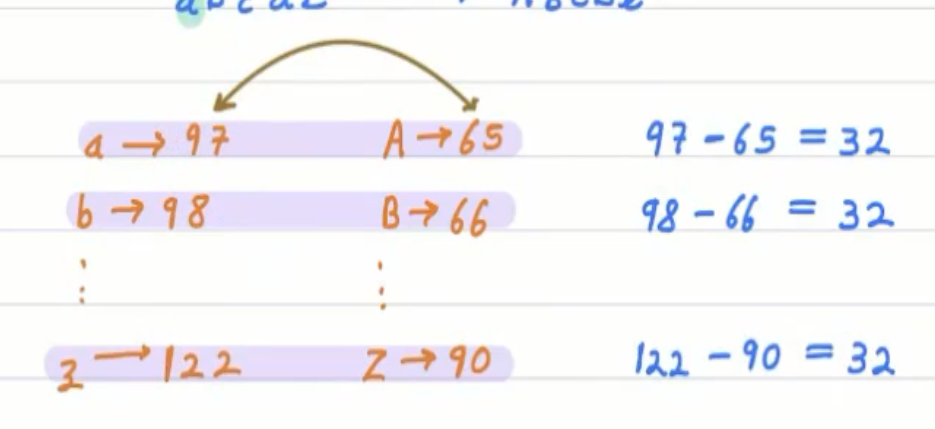 a → 97 A → 65 97 - 65 = 32
b → 98 B → 66 98 - 66 = 32
⋮ ⋮
z → 122 Z → 90 122 - 90 = 32